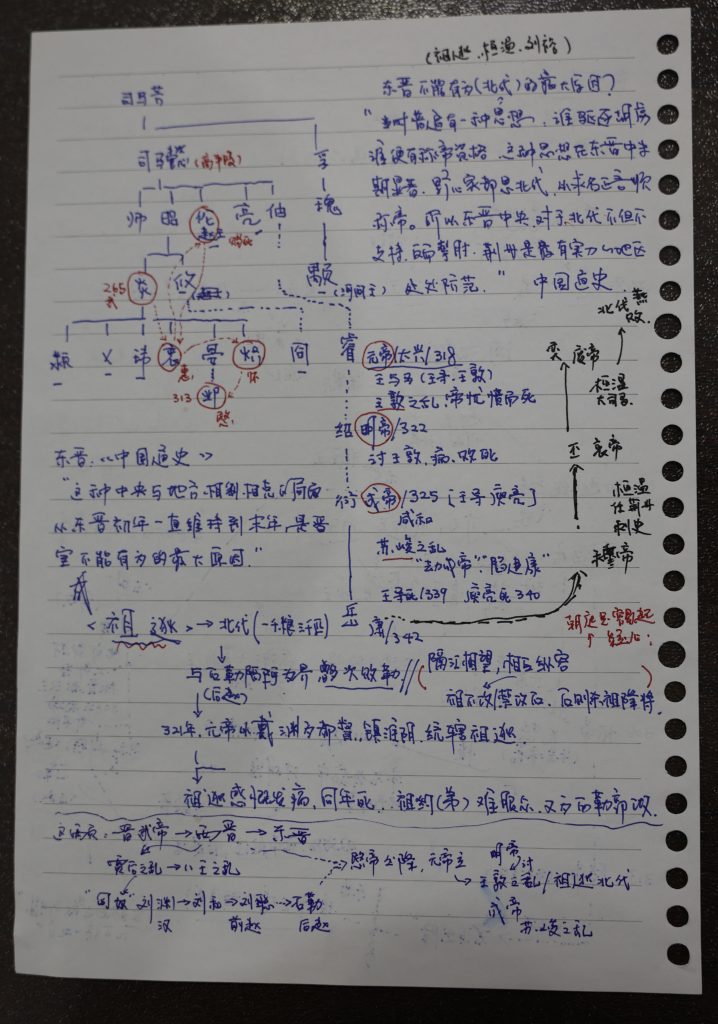 (祖逖、桓温、刘裕)
东晋不能有为(北伐)的最大原因?
"当时普遍有一种思想,谁驱逐胡虏
谁便有称帝资格,这种思想在东晋中末
期显著,野心家都思北伐,从求名正言顺
称帝。所以东晋中央,对于北伐不但不
支持,而掣肘,荆州是最有实力的地区
处处防范。" 中国通史
司马芳
司马懿(高平陵)
孚
师 昭 伦 亮 伷
赵王
瑰
颙(河间王)
265
武
炎 攸
颖 乂 玮 衷 晏 炽 冏
惠 怀
313 邺
愍
睿 元帝/大兴/318
王与马(王导、王敦)
王敦之乱,帝忧愤而死
绍 明帝/322
讨王敦,病,败死
衍 成帝/325 [王导 庾亮]
咸和
苏峻之乱
"劫成帝","陷建康"
王导死/339 庾亮死340
岳 康/342
北伐燕
败
奕 废帝
桓温
大司马
丕 哀帝
桓温
任荆州
刺史
穆帝
东晋:《中国通史》
"这种中央与地方相制相克的局面
从东晋初年一直维持到末年,是晋
室不能有为的最大原因。"
<祖逖>→北伐(一千粮三千匹)
与石勒隔河为界 数次败勒//
(后赵)
隔江相望,相互纵容
祖不攻蔡攻石、石则杀祖降将。
321年,元帝以戴渊为都督,镇淮阴,统辖祖逖。
祖逖感慨发病,同年死. 祖约(弟)难服众,又为石勒部攻.
晋武帝→西晋→东晋
贾后之乱→八王之乱
愍帝公降,元帝立
明帝
讨
王敦之乱/祖逖北伐
成帝
苏峻之乱
刘渊→刘和→刘聪→石勒
汉 前赵 后赵